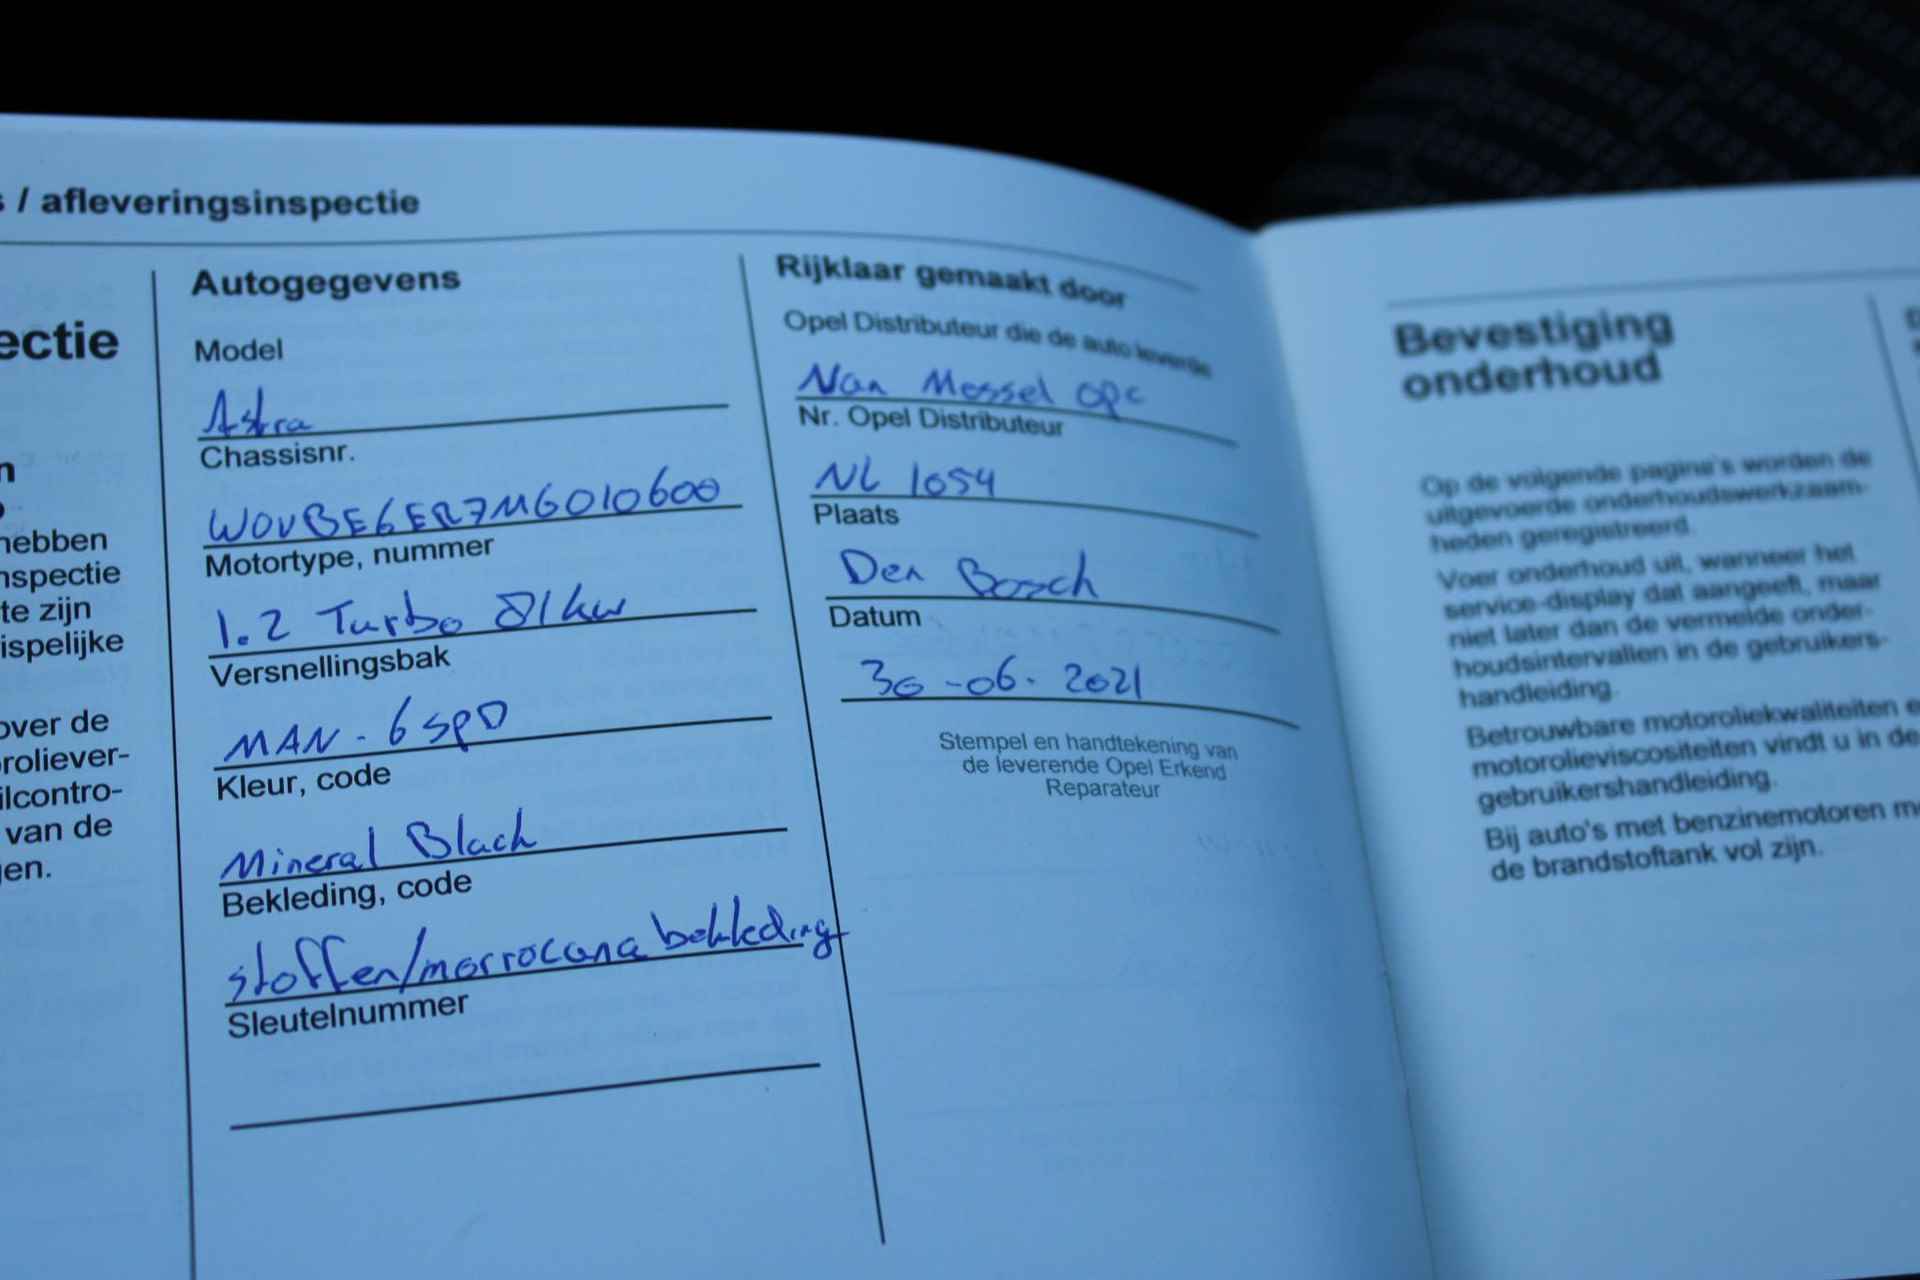 / afleveringsinspectie
ectie
n
hebben
nspectie
te zijn
ispelijke
over de
roliever-
ilcontro-
van de
gen.
Autogegevens
Model
Astra
Chassisnr.
W0VBE6ER7MG010600
Motortype, nummer
1.2 Turbo 81kw
Versnellingsbak
MAN - 6 spD
Kleur, code
Mineral Black
Bekleding, code
stoffen/morrocana bekleding
Sleutelnummer
Rijklaar gemaakt door
Opel Distributeur die de auto leverde
Van Mossel opc
Nr. Opel Distributeur
NL 1054
Plaats
Den Bosch
Datum
30-06-2021
Stempel en handtekening van
de leverende Opel Erkend
Reparateur
Bevestiging
onderhoud
Op de volgende pagina's worden de
uitgevoerde onderhoudswerkzaam-
heden geregistreerd.
Voer onderhoud uit, wanneer het
service-display dat aangeeft, maar
niet later dan de vermelde onder-
houdsintervallen in de gebruikers-
handleiding.
Betrouwbare motoroliekwaliteiten e
motorolieviscositeiten vindt u in de
gebruikershandleiding.
Bij auto's met benzinemotoren mo
de brandstoftank vol zijn.